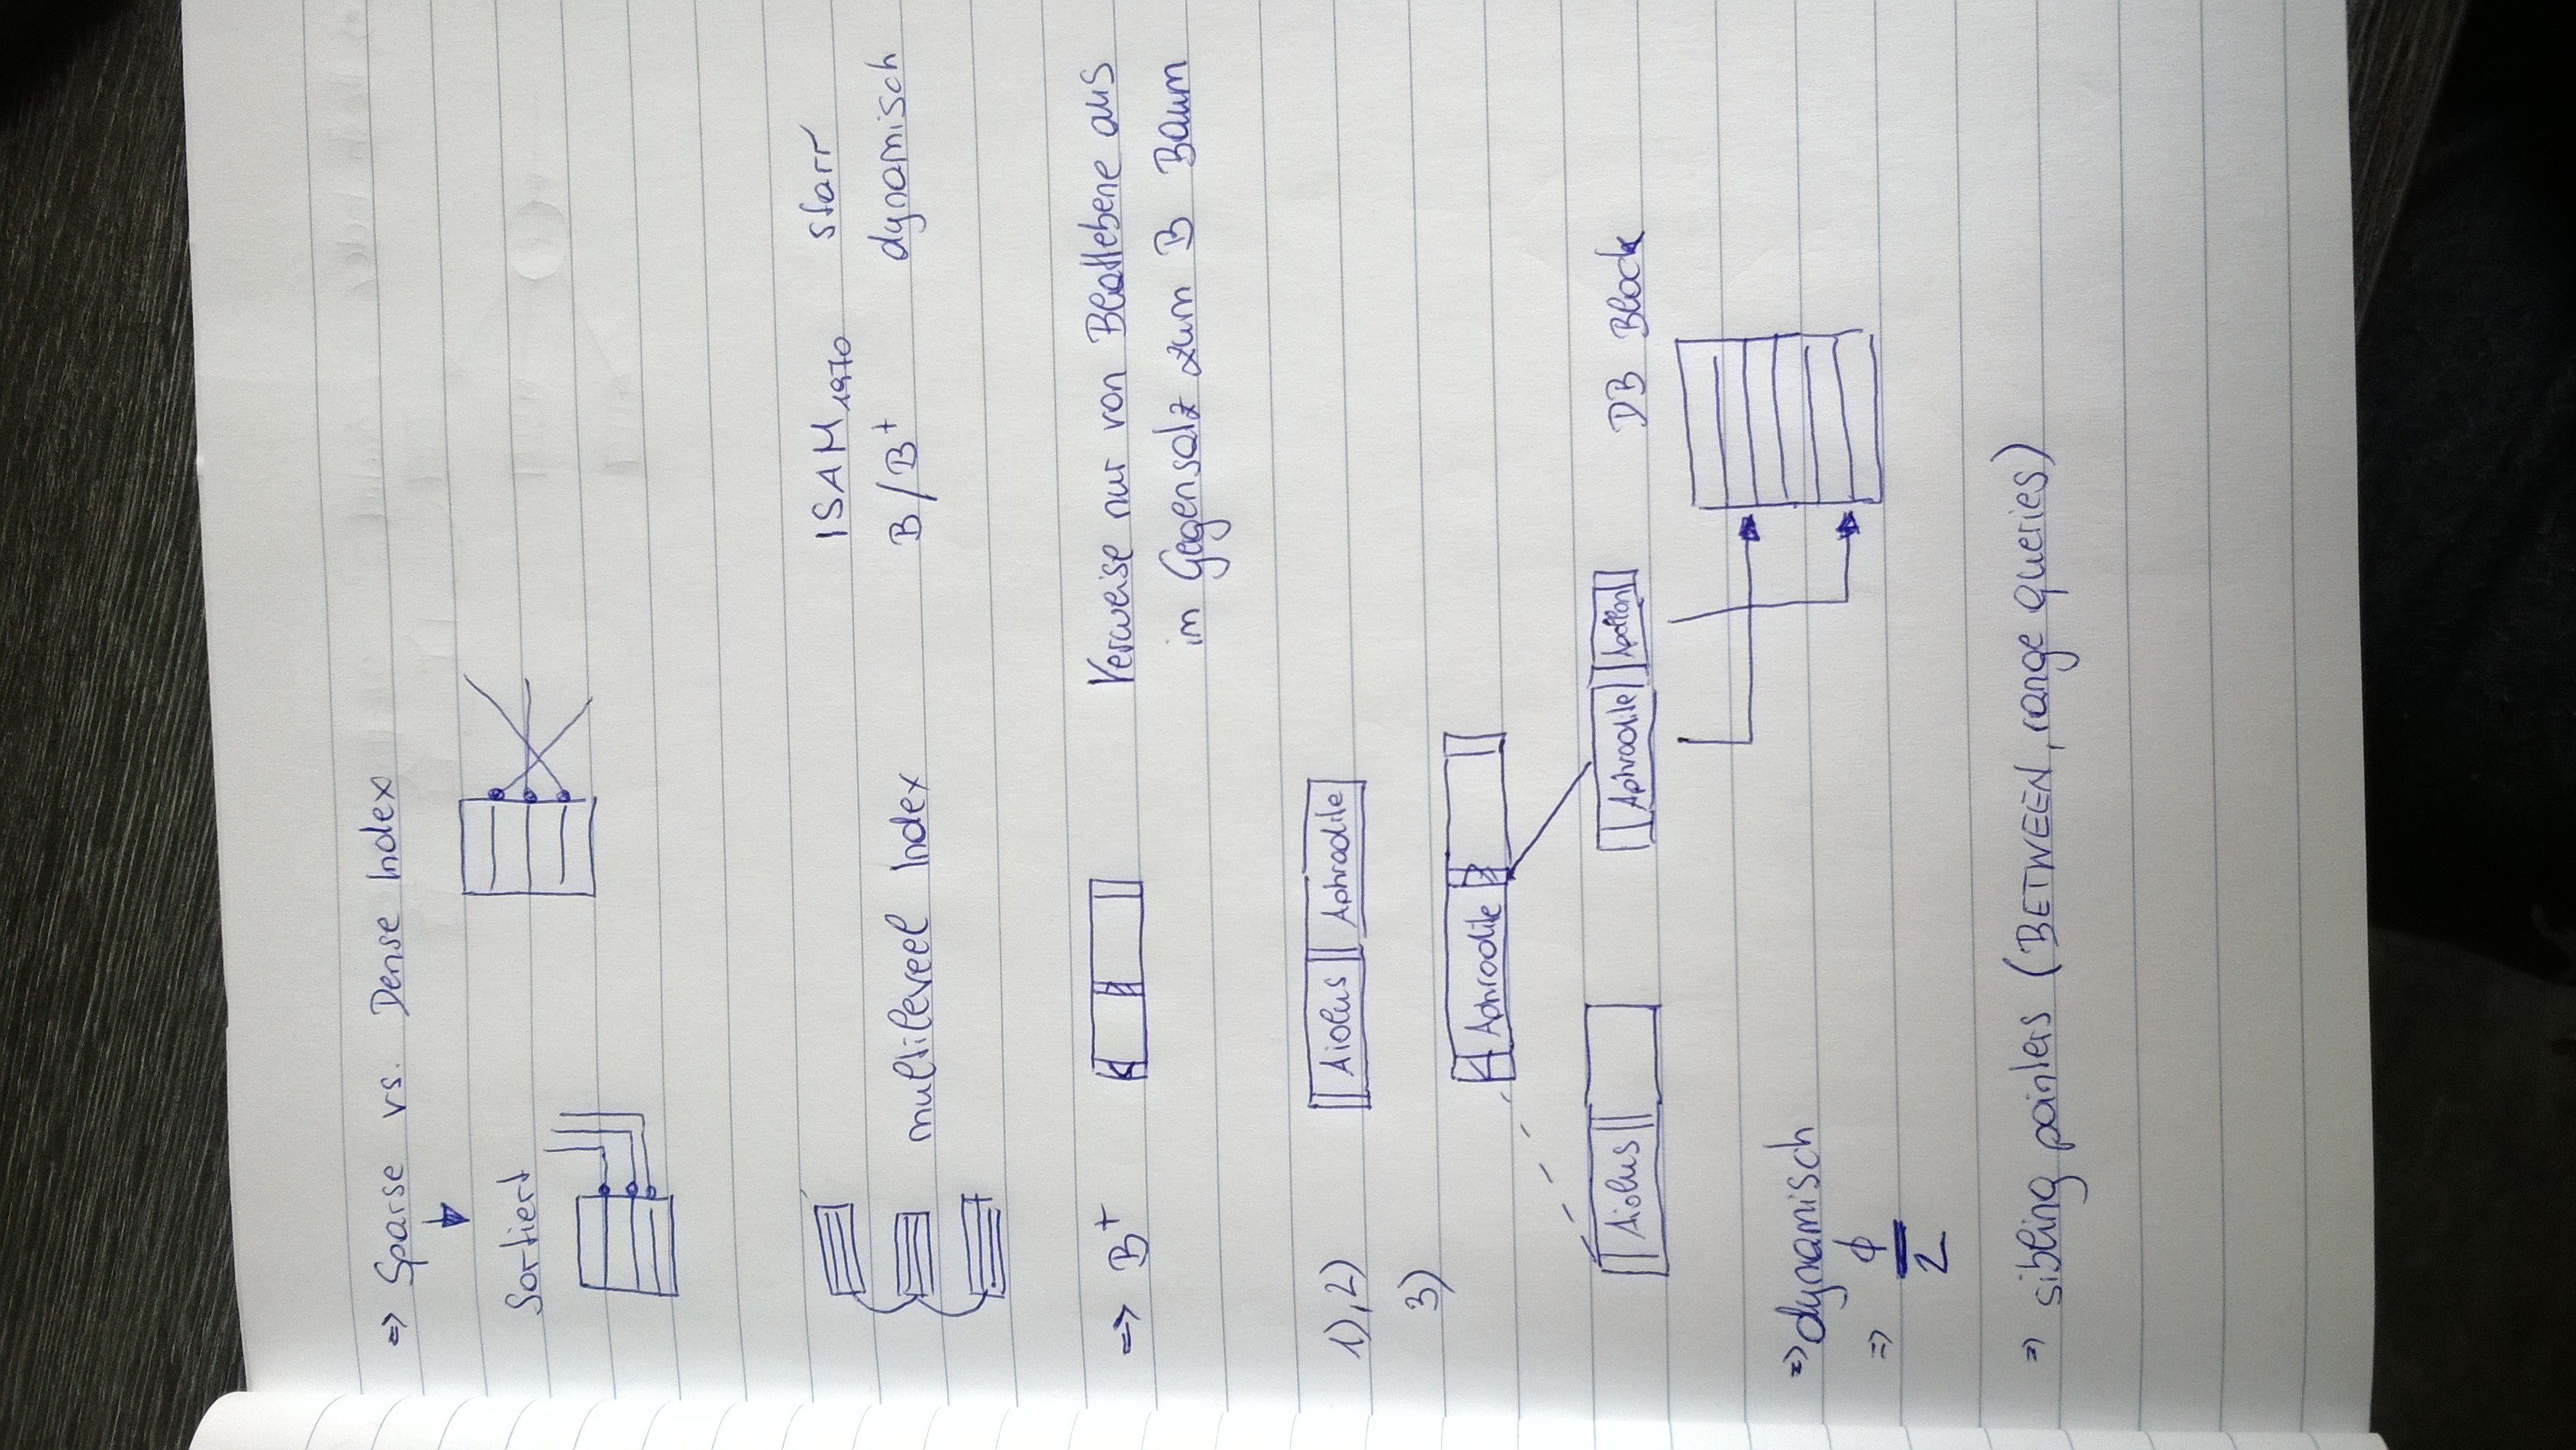 => Sparse vs. Dense Index
Sortiert
ISAM 1970 starr
multilevel Index B/B+ dynamisch
=> B+ Verweise nur von Blattebene aus
in Gegensatz zum B Baum
1),2) Aiolus Aphrodite
3) Aphrodite
Aiolus Aphrodite Apollon DB Block
=> dynamisch
=> 2
=> sibling pointers (BETWEEN, range queries)